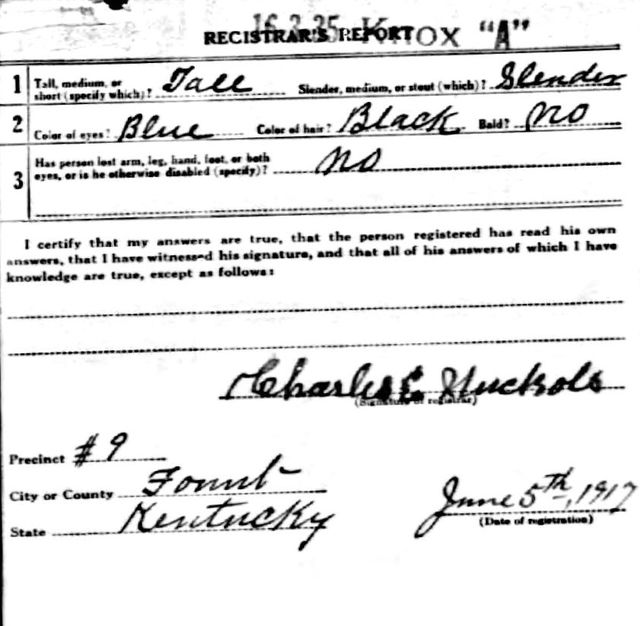 16-3-25 Knox "A"
REGISTRAR'S REPORT
1 Tall, medium, or short (specify which)? Tall Slender, medium, or stout (which)? Slender
2 Color of eyes? Blue Color of hair? Black Bald? No
3 Has person lost arm, leg, hand, foot, or both eyes, or is he otherwise disabled (specify)? No
I certify that my answers are true, that the person registered has read his own
answers, that I have witnessed his signature, and that all of his answers of which I have
knowledge are true, except as follows:
Charles E Nuckols
(Signature of registrar)
Precinct #9
City or County Fount
State Kentucky
June 5th, 1917
(Date of registration)